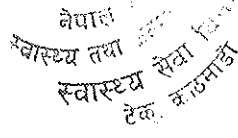 नेपाल
स्वास्थ्य तथा
स्वास्थ्य सेवा
टेकु, काठमाडौं